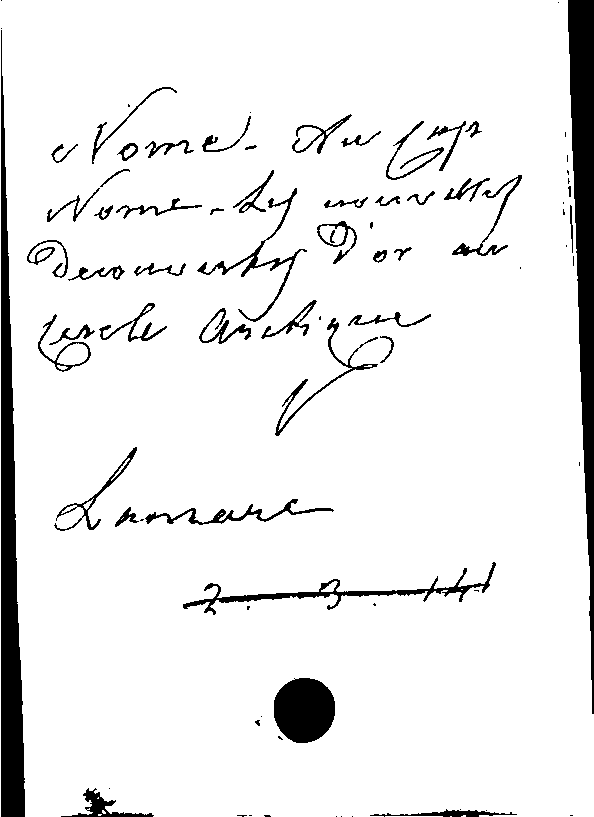 Nome. Au Cap
Nome. Les nouvelles
Decouvertes d'or au
Cercle Arctique
Lamare
2. 3. 141